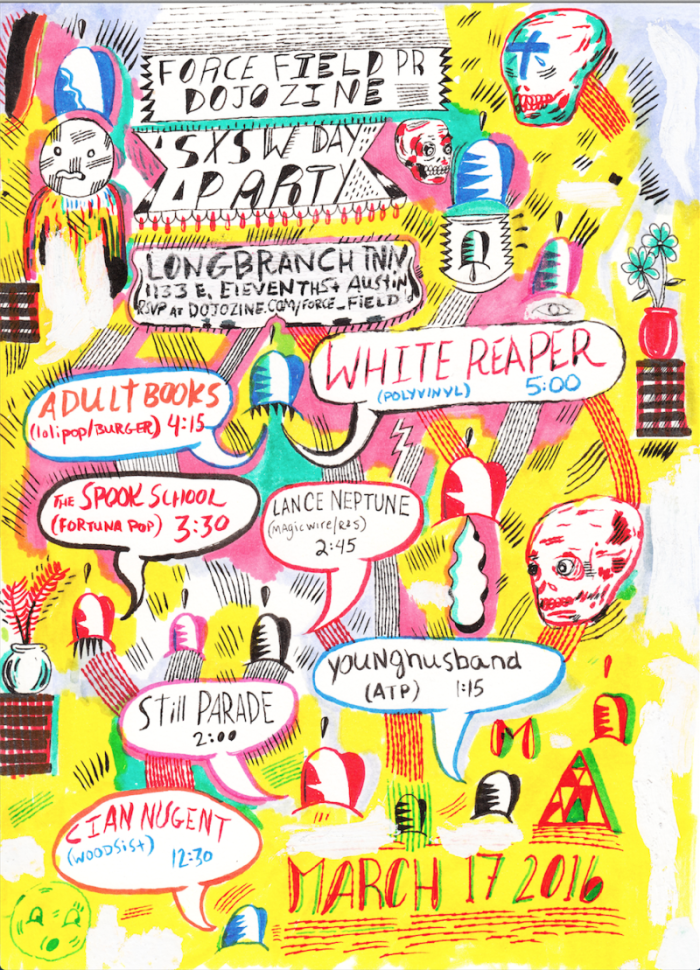 FORCE FIELD PR
DOJO ZINE
SXSW DAY
PARTY
LONGBRANCH INN
1133 E. ELEVENTH St AUSTIN
RSVP AT DOJOZINE.COM/FORCE_FIELD
WHITE REAPER
(POLYVINYL) 5:00
ADULT BOOKS
(lolipop/BURGER) 4:15
THE SPOOK SCHOOL
(FORTUNA POP) 3:30
LANCE NEPTUNE
(MAGIC WIRE/R&S)
2:45
youNghusband
(ATP) 1:15
Still PARADE
2:00
CIAN NUGENT
(WOODSiSt) 12:30
MARCH 17 2016